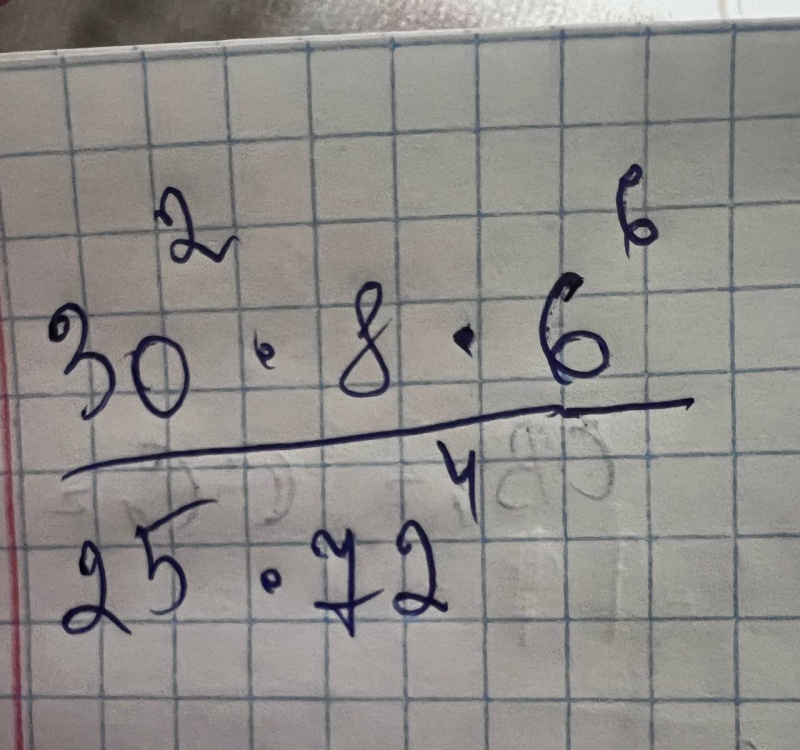 30² · 8 · 6⁶
25 · 72⁴